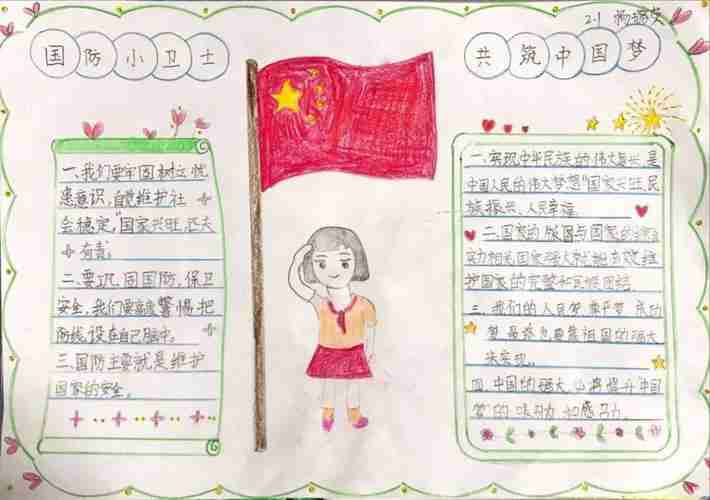 2.1 杨
国防小卫士
共筑中国梦
一、我们要牢固树立忧
患意识，自觉维护社
会稳定，"国家兴旺，匹夫
有责。
二、要巩固国防，保卫
安全，我们要高度警惕把
防线设在自己脑中。
三、国防主要就是维护
国家的安全。
一、实现中华民族的伟大复兴，是
中国人民的伟大梦想"国家兴旺，民
族振兴，人民幸福
二、国家的版图与国家的
相关国家强大就能有效维
护国家的完整和民族团结。
三、我们的人民梦，成功
梦，最终也要靠祖国的强大
来实现。
四、中国的强大，必将提升中国
梦的吸引力和感召力。